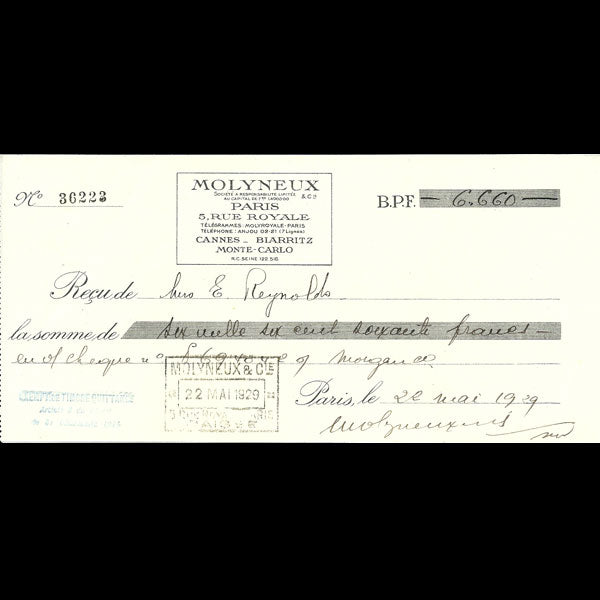 Nº 36223
MOLYNEUX
SOCIÉTÉ A RESPONSABILITÉ LIMITÉE
AU CAPITAL DE Frs & Cº
PARIS
5, RUE ROYALE
TÉLÉGRAMMES: MOLYROYALE-PARIS
TÉLÉPHONE: ANJOU 02-21 (7 Lignes)
CANNES _ BIARRITZ
MONTE-CARLO
R.C. SEINE
B.P.F. 6.660
Reçu de Mrs E. Reynolds
la somme de Six mille six cent soixante francs
cheque nº of Morgan Co
MOLYNEUX & CIE
22 MAI 1929
PARIS
Paris, le 22 mai 1929